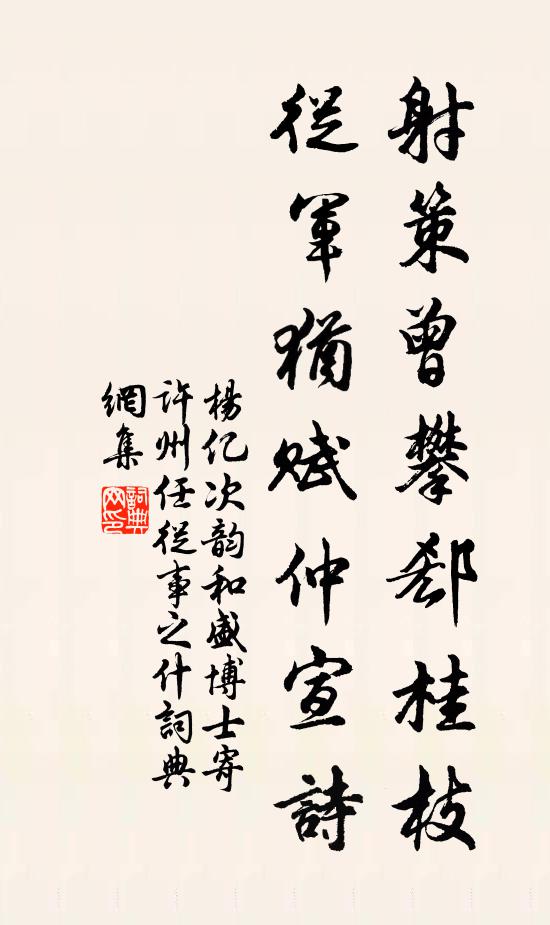 射策曾攀郄桂枝
從軍猶賦仲宣詩
楊亿次韵和盛博士寄
許州任從事之什詞典
網集
詞典網印